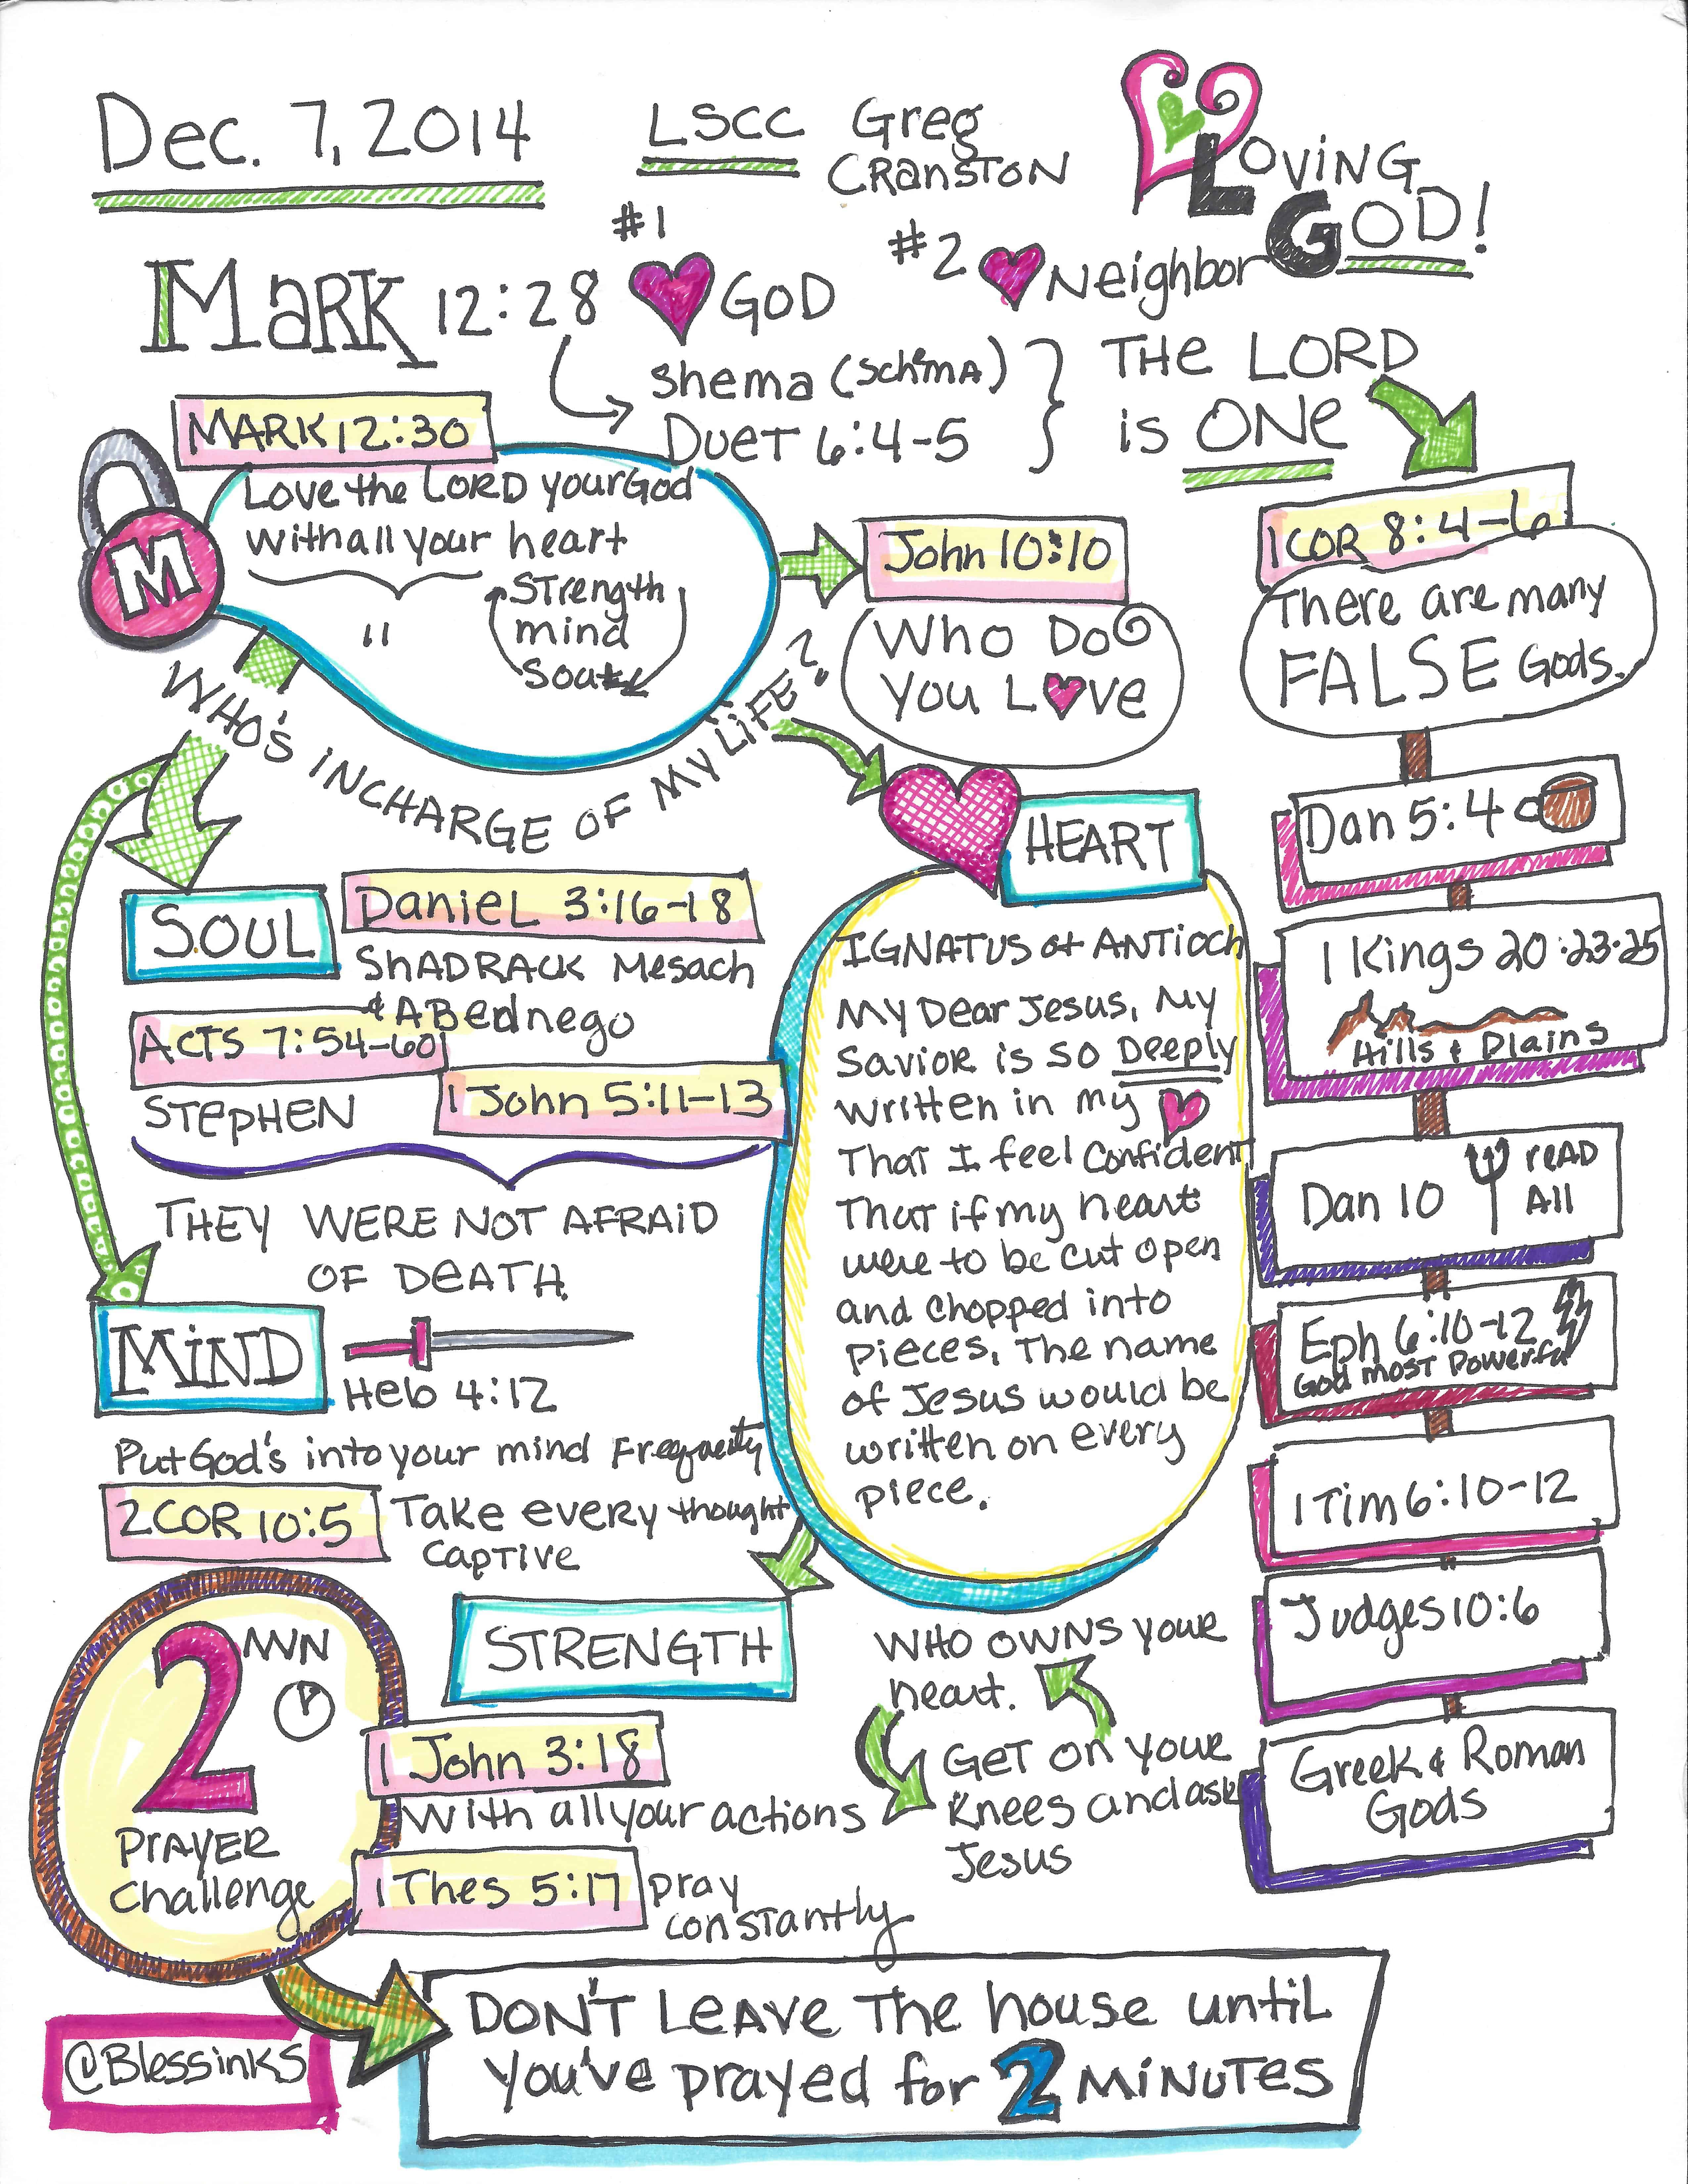 Dec. 7, 2014
LSCC Greg
CRANSTON
LOVING
GOD!
#1
GOD
#2
Neighbor
MARK 12:28
Shema (SchemA)
Duet 6:4-5
THE LORD
is ONE
MARK 12:30
Love the LORD your God
with all your heart
"
Strength
mind
Soul
M
WHO'S INCHARGE OF MY LIFE?
John 10:10
Who Do
You Love
1 COR 8:4-6
There are many
FALSE Gods.
Dan 5:4
1 Kings 20:23-25
Hills & Plains
Dan 10 read
All
Eph 6:10-12
God most Powerful
1 Tim 6:10-12
Judges 10:6
Greek & Roman
Gods
SOUL
Daniel 3:16-18
ShADRACK Mesach
& ABednego
ACTS 7:54-60
STEPHEN
1 John 5:11-13
THEY WERE NOT AFRAID
OF DEATH.
HEART
IGNATUS of ANTIOCH
My Dear Jesus, My
Savior is so Deeply
written in my
That I feel Confident
That if my heart
were to be cut open
and chopped into
pieces, The name
of Jesus would be
written on every
piece.
MIND
Heb 4:12
Put God's into your mind Frequently
2 COR 10:5
Take every thought
CAPTIVE
STRENGTH
1 John 3:18
With all your actions
1 Thes 5:17
pray
constantly
WHO OWNS your
heart.
GET ON your
Knees and ask
Jesus
2 MIN
PRAYER
Challenge
DON'T LEAVE THE house until
You've prayed for 2 MINUTES
@BlessinkS